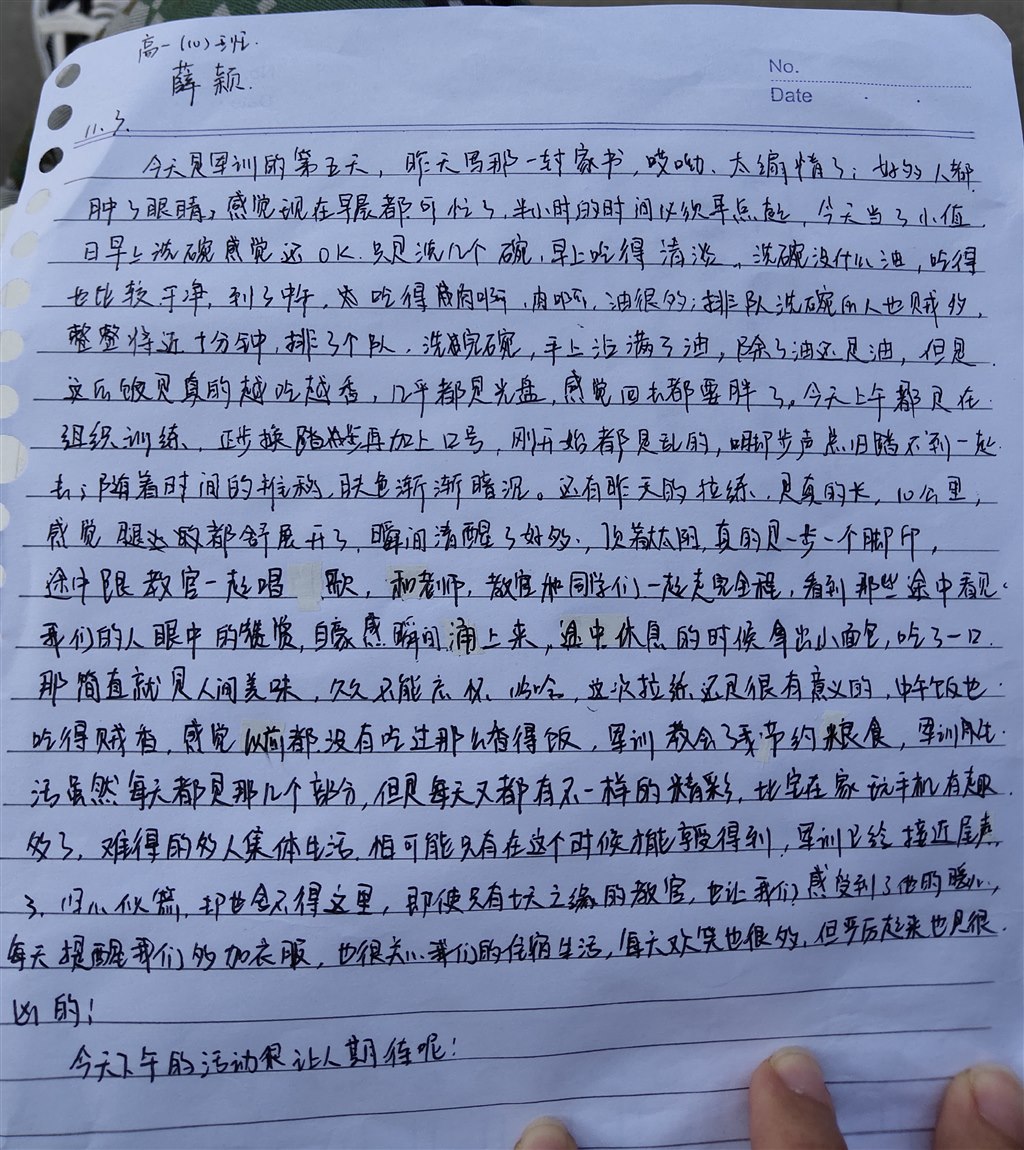 高一(10)班.
薛颖.
No.
Date
11.3.
今天是军训的第五天，昨天写那一封家书，哎呦、太煽情了；好多人都
肿了眼睛，感觉现在早晨都可忙了，半小时的时间必须早点起，今天当了小值
日早上洗碗感觉还OK.只是洗几个碗，早上吃得清淡，洗碗没什么油，吃得
也比较干净，到了中午，吃得肉啊，肉啊，油很多；排队洗碗的人也贼多，
整整将近十分钟，排了个队，洗碗，手上沾满了油，除了油还是油，但是
这伙饭是真的越吃越香，几乎都是光盘，感觉回去都要胖了。今天上午都是在
组织训练、正步换踏步再加上口号，刚开始都是乱的，脚步声总归踏不到一起
去；随着时间的推移，肤色渐渐暗沉。还有昨天的拉练、是真的长，10公里，
感觉腿都舒展开了，瞬间清醒了好多，顶着太阳，真的是一步一个脚印，
途中跟教官一起唱歌，和老师，教官和同学们一起走完全程，看到那些途中看见
我们的人眼中的赞赏，自豪感瞬间涌上来，途中休息的时候拿出小面包，吃了一口
那简直就是人间美味，久久不能忘怀，哈哈，这次拉练还是很有意义的，中午饭也
吃得贼香，感觉以前都没有吃过那么香得饭，军训教会了我节约粮食，军训生
活虽然每天都是那几个部分，但是每天又都有不一样的精彩，比宅在家玩手机有趣
多了，难得的多人集体生活，想可能只有在这个时候才能享受得到，军训已经接近尾声
了，归心似箭，却也舍不得这里，即使只有七天之缘的教官，也让我们感受到了他的暖心，
每天提醒我们多加衣服，也很关心我们的住宿生活，每天欢笑也很多，但严厉起来也是很
凶的！
今天下午的活动很让人期待呢！